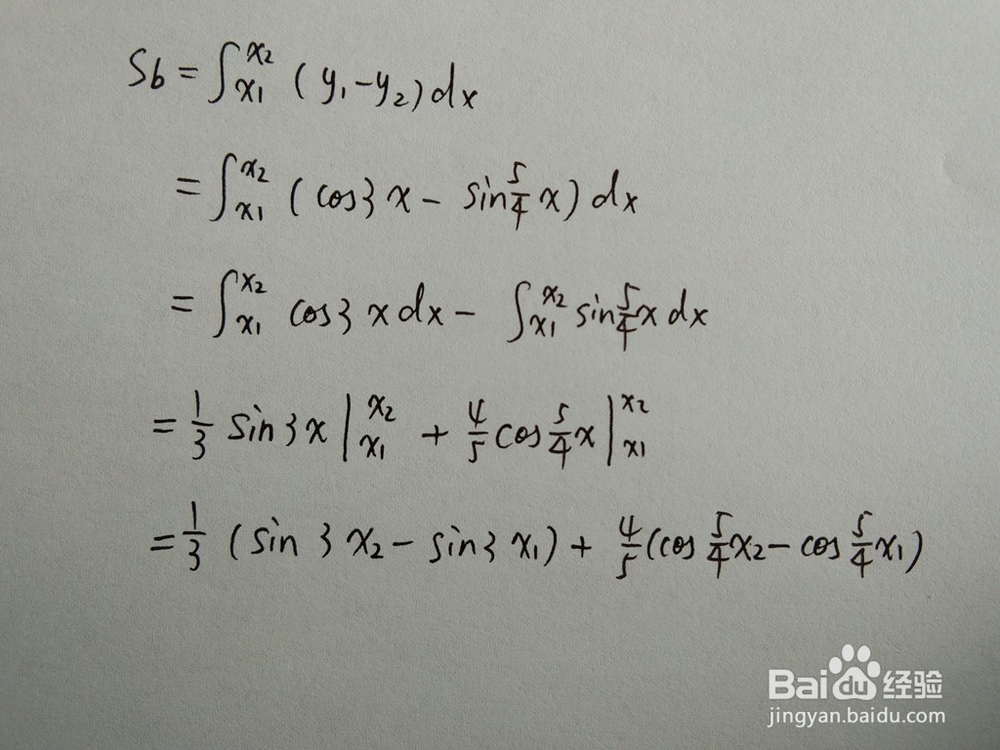 Sb = ∫_{x1}^{x2} (y₁-y₂)dx
= ∫_{x1}^{x2} (cos3x - sin5/4x)dx
= ∫_{x1}^{x2} cos3xdx - ∫_{x1}^{x2} sin5/4xdx
= 1/3 sin3x|_{x1}^{x2} + 4/5cos5/4x|_{x1}^{x2}
= 1/3 (sin3x₂ - sin3x₁) + 4/5(cos5/4x₂ - cos5/4x₁)
Baidu经验
jingyan.baidu.com